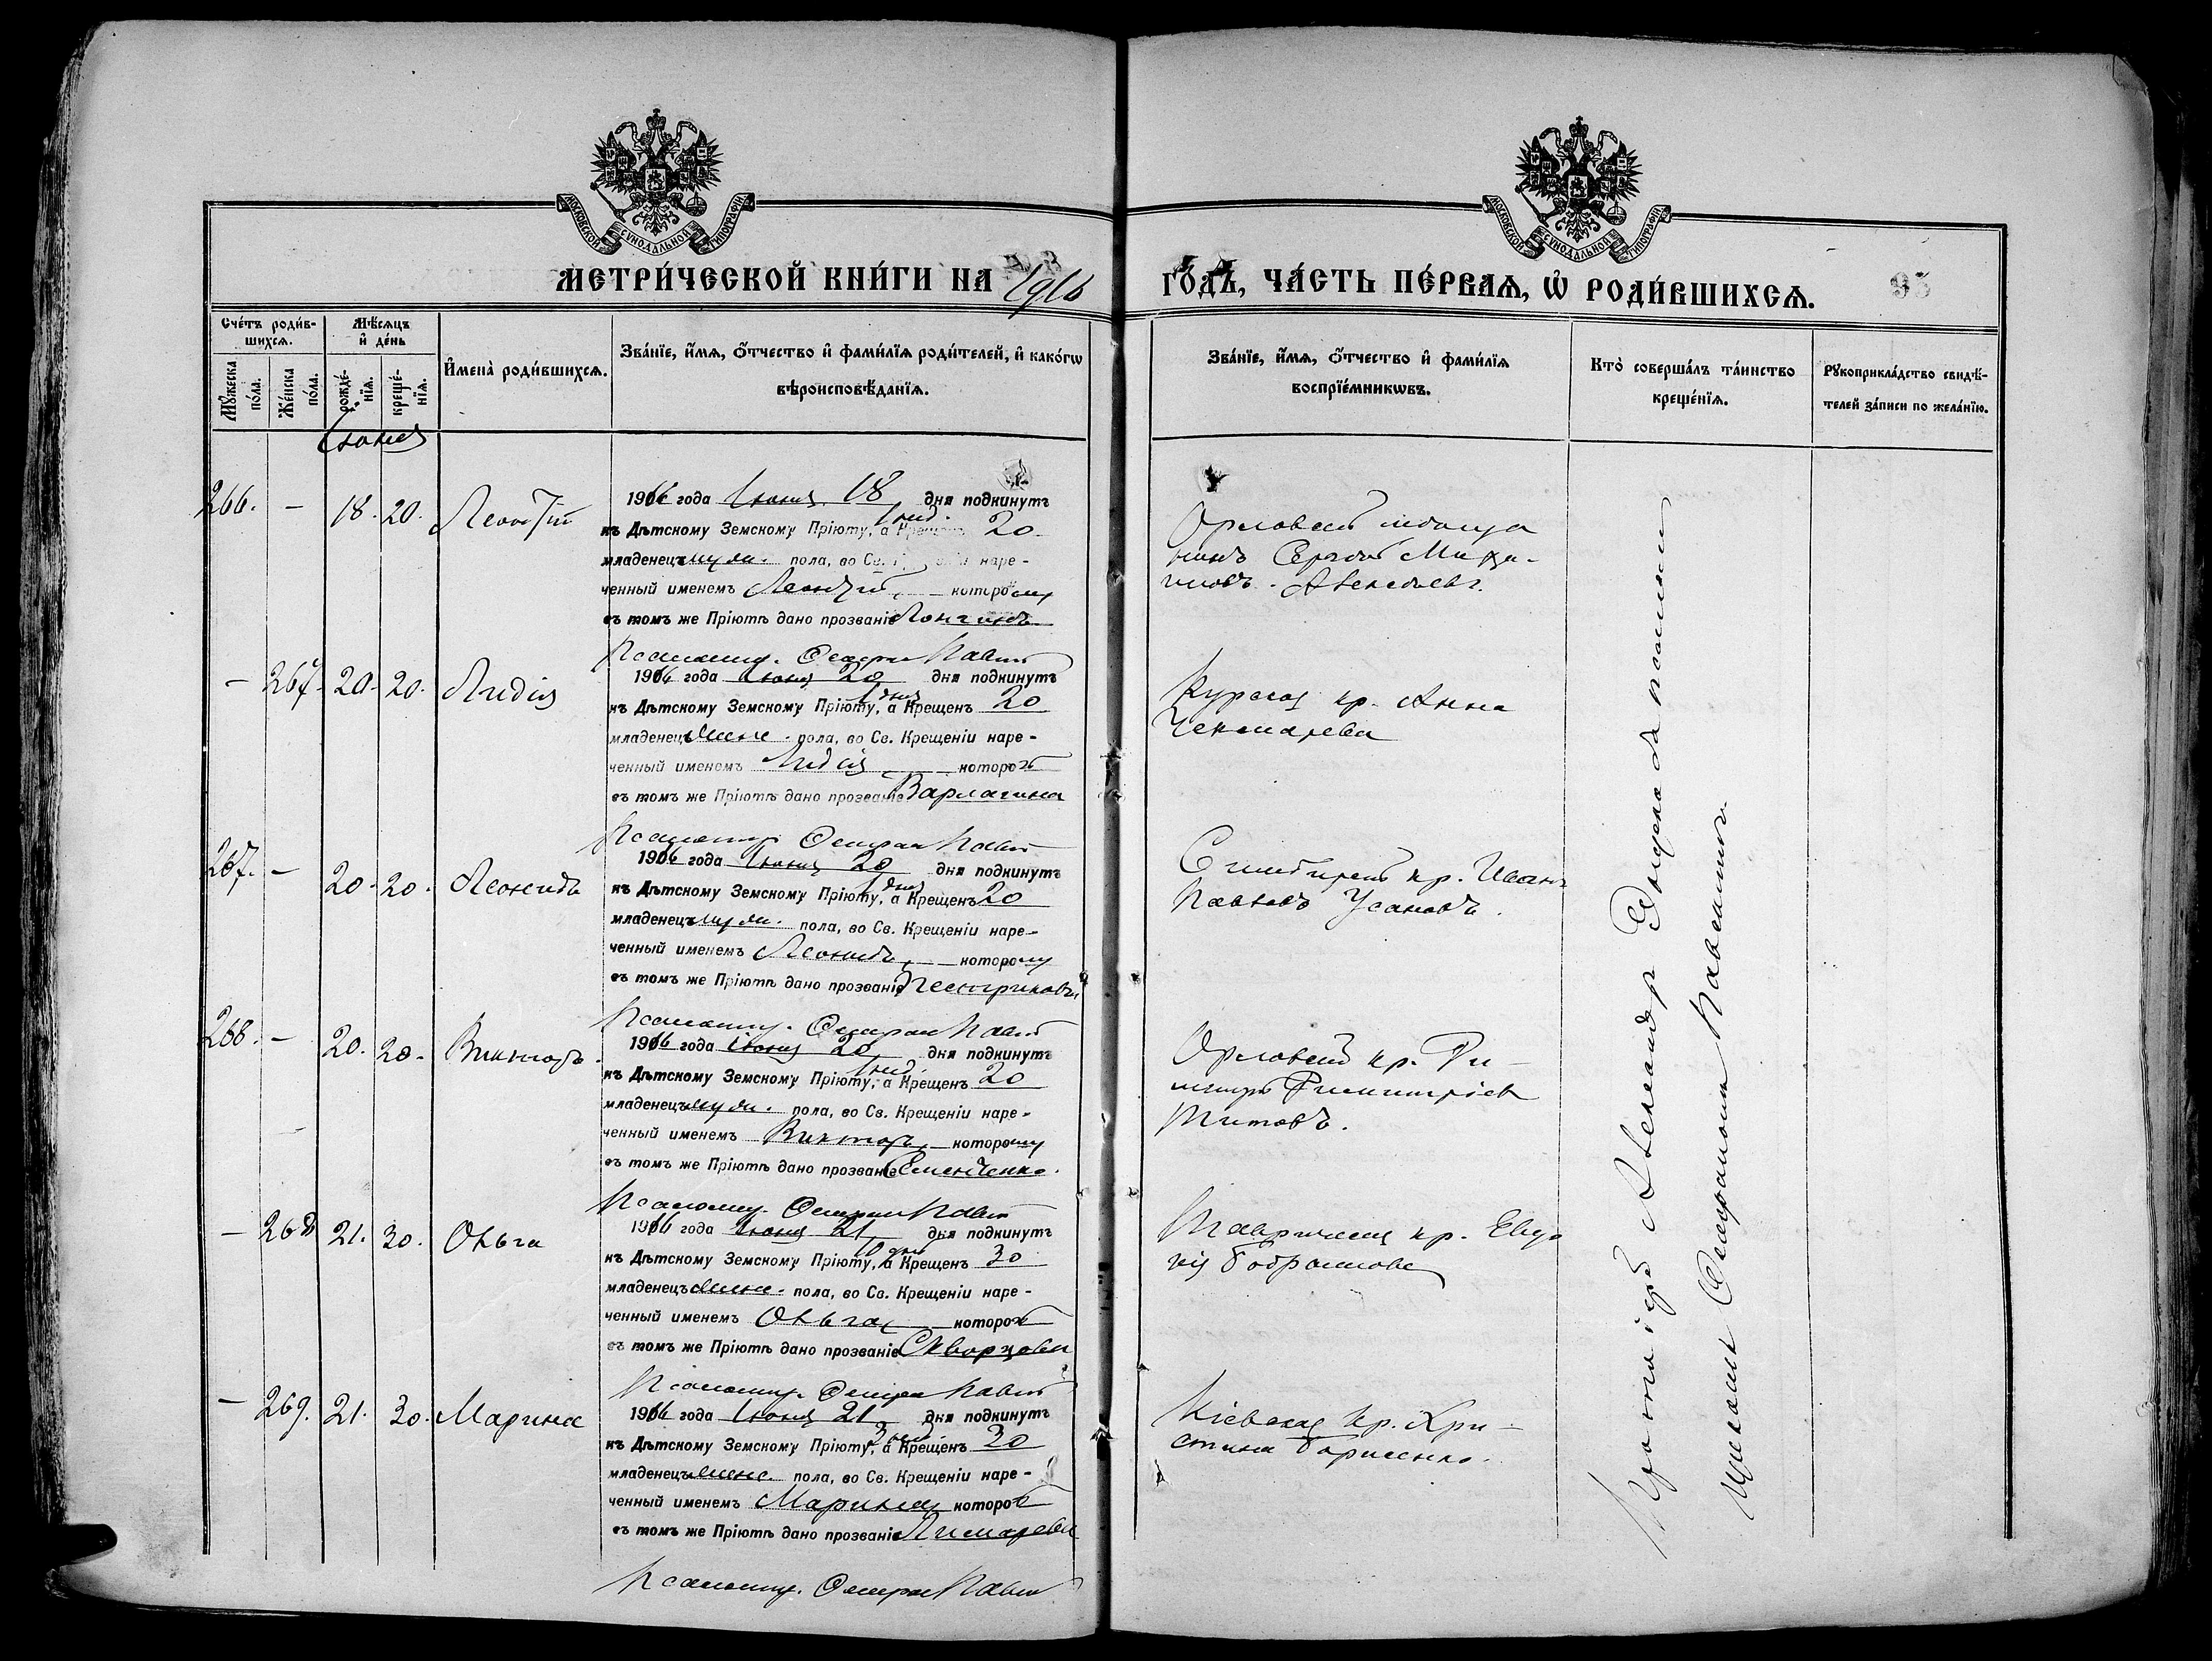 МОСКОВСКОЙ СѴНОДАЛЬНОЙ ТИПОГРАФІИ
МОСКОВСКОЙ СѴНОДАЛЬНОЙ ТИПОГРАФІИ
МЕТРИ́ЧЕСКОЙ КНИ́ГИ НА 1916 ГО́ДЪ, ЧА́СТЬ ПЕ́РВАѦ, Ѡ҆ РОДИ́ВШИХСѦ.
93
Счéтъ роди́в-
шихсѧ.
Мꙋ́жеска по́ла.
Же́нска по́ла.
Мѣ́сѧцъ
и҆ де́нь
рожде́-
нїѧ.
креще́-
нїѧ.
И҆мена̀ роди́вшихсѧ.
Зва́нїе, и҆́мѧ, ѻ҆́тчество и҆ фами́лїѧ роди́телей, и҆ како́гѡ
вѣроисповѣ́данїѧ.
Зва́нїе, и҆́мѧ, ѻ҆́тчество и҆ фами́лїѧ
воспрїе́мникѡвъ.
Кто̀ соверша́лъ та́инство
креще́нїѧ.
Рꙋкоприкла́дство свидѣ́-
телей за́писи по жела́нїю.
Іюня
266. - 18. 20. Леонтій
1916 года Іюня 18 дня подкинутъ
къ Дѣтскому Земскому Пріюту, а Крещенъ 20
младенецъ муж. пола, во Св. Крещеніи наре-
ченный именемъ Леонтій, которому
въ томъ же Пріютѣ дано прозваніе Лонгинъ
Псаломщ. Павл
Орловскій мѣща
нинъ Сергѣй Миха-
иловъ Алексѣевъ.
- 267. 20. 20. Лидія
1916 года Іюня 20 дня подкинутъ
1 дня
къ Дѣтскому Земскому Пріюту, а Крещенъ 20
младенецъ женс. пола, во Св. Крещеніи наре-
ченный именемъ Лидія которой
въ томъ же Пріютѣ дано прозваніе Варлагина
Псаломщ. Павл
Курская кр. Анна
Чекмарева
267. - 20. 20. Леонидъ
1916 года Іюня 20 дня подкинутъ
1 дня
къ Дѣтскому Земскому Пріюту, а Крещенъ 20
младенецъ муж. пола, во Св. Крещеніи наре-
ченный именемъ Леонидъ, которому
въ томъ же Пріютѣ дано прозваніе
Псаломщ. Павл
Симбирскій кр. Иванъ
Павловъ Усановъ.
268. - 20. 20. Викторъ.
1916 года Іюня 20 дня подкинутъ
къ Дѣтскому Земскому Пріюту, а Крещенъ 20
младенецъ муж. пола, во Св. Крещеніи наре-
ченный именемъ Викторъ, которому
въ томъ же Пріютѣ дано прозваніе Семенченко.
Псаломщ. Павл
Орловскій кр. Ди-
митрій Димитріев
Титовъ.
- 268 21. 30. Ольга
1916 года Іюня 21, дня подкинутъ
10 дней
къ Дѣтскому Земскому Пріюту, а Крещенъ 30
младенецъ женс. пола, во Св. Крещеніи наре-
ченный именемъ Ольга которой
въ томъ же Пріютѣ дано прозваніе Скворцова
Псаломщ. Павл
Таврическая кр. Евдо
кія
- 269. 21. 30. Марина
1916 года Іюня 21 дня подкинутъ
къ Дѣтскому Земскому Пріюту, а Крещенъ 30
младенецъ женс. пола, во Св. Крещеніи наре-
ченный именемъ Марина которой
въ томъ же Пріютѣ дано прозваніе Лимарева
Псаломщ. Павл
Кіевская кр. Хри-
стина Борисенко.
Протоіерей Александр съ псаломщи
комъ Павл